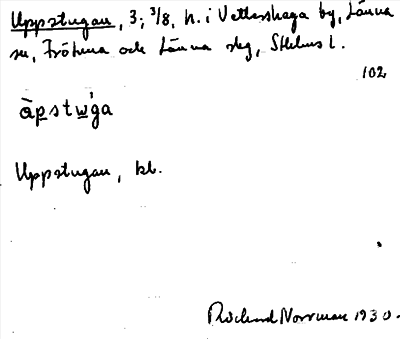 Uppstugan, 3; 3/8, h. i Vettershaga by, Länna
sn, Frötuna och Länna slg, Sthlms l.
102
àpstẃga
Uppstugan, kb.
Richard Norrman 1930.